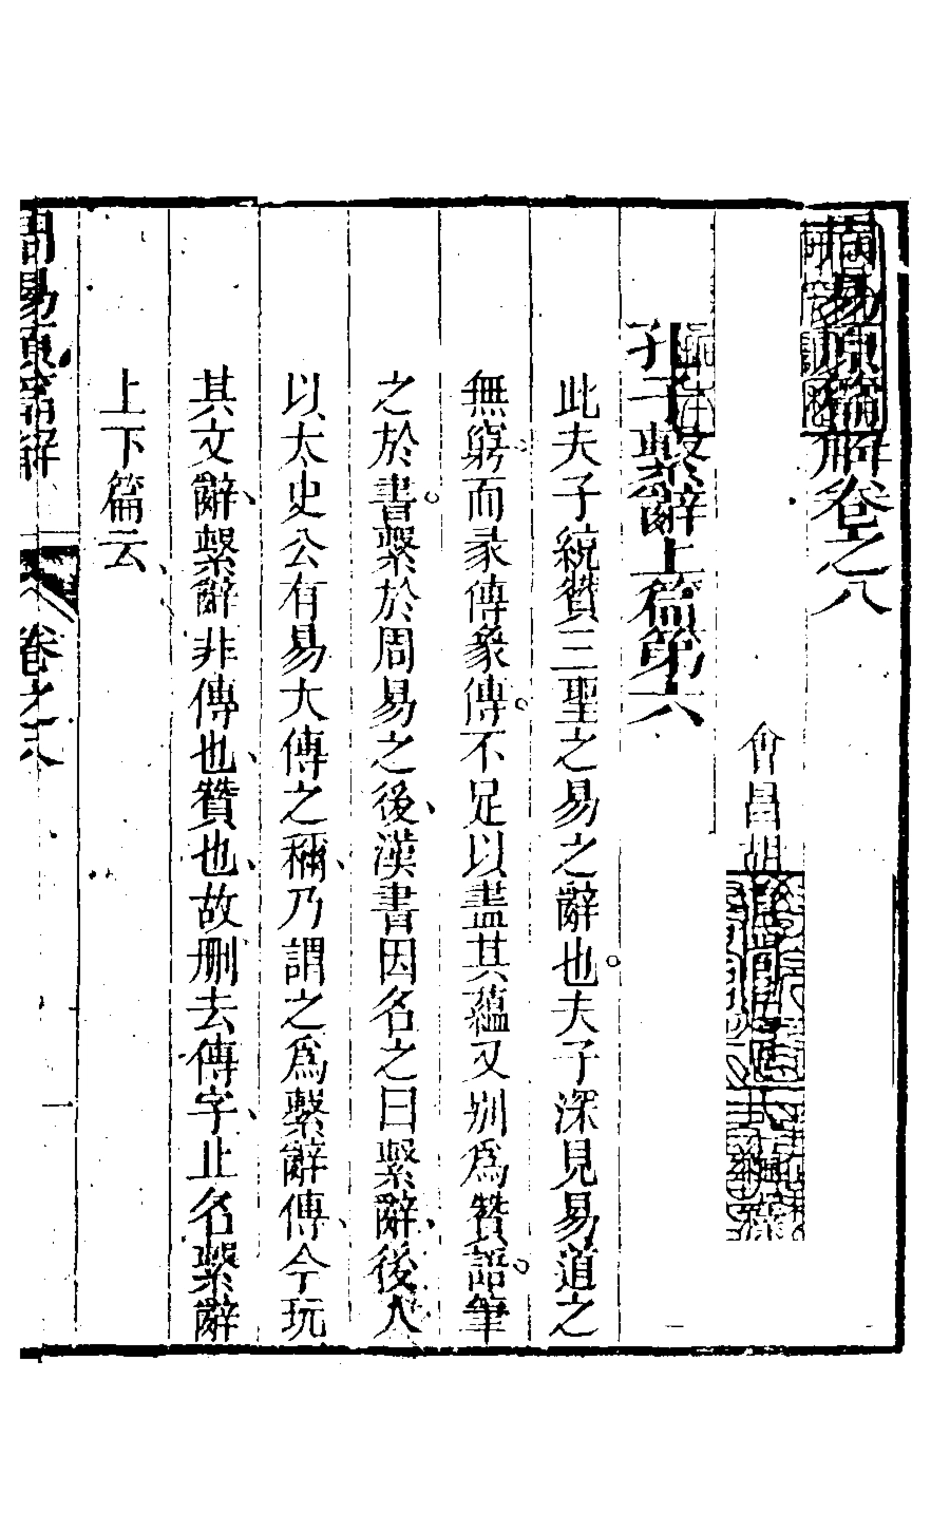 周易原篇解卷之八
會昌胡
孔子繫辭上篇第六
此夫子統贊三聖之易之辭也。夫子深見易道之
無窮。而彖傳象傳。不足以盡其蘊又别爲贊語。筆
之於書。繫於周易之後、漢書因名之曰繫辭、後人
以太史公有易大傳之穪、乃謂之爲繫辭傳、今玩
其文辭、繫辭非傳也、贊也、故删去傳字、止名繫辭
上下篇云、
周易原篇解 卷之八 一